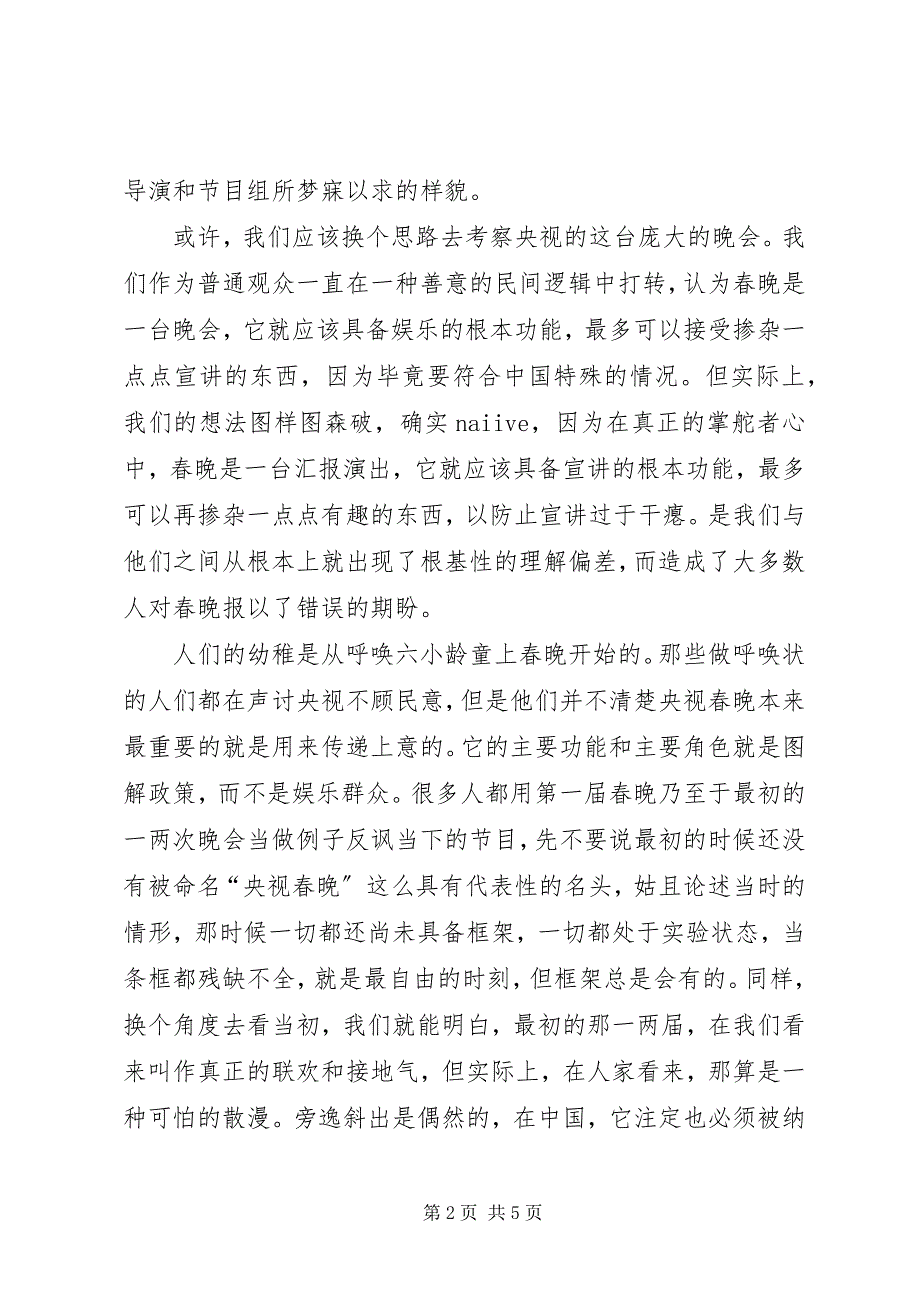 导演和节目组所梦寐以求的样貌。
或许，我们应该换个思路去考察央视的这台庞大的晚会。我
们作为普通观众一直在一种善意的民间逻辑中打转，认为春晚是
一台晚会，它就应该具备娱乐的根本功能，最多可以接受掺杂一
点点宣讲的东西，因为毕竟要符合中国特殊的情况。但实际上，
我们的想法图样图森破，确实naiive，因为在真正的掌舵者心
中，春晚是一台汇报演出，它就应该具备宣讲的根本功能，最多
可以再掺杂一点点有趣的东西，以防止宣讲过于干瘪。是我们与
他们之间从根本上就出现了根基性的理解偏差，而造成了大多数
人对春晚报以了错误的期盼。
人们的幼稚是从呼唤六小龄童上春晚开始的。那些做呼唤状
的人们都在声讨央视不顾民意，但是他们并不清楚央视春晚本来
最重要的就是用来传递上意的。它的主要功能和主要角色就是图
解政策，而不是娱乐群众。很多人都用第一届春晚乃至于最初的
一两次晚会当做例子反讽当下的节目，先不要说最初的时候还没
有被命名“央视春晚〞这么具有代表性的名头，姑且论述当时的
情形，那时候一切都还尚未具备框架，一切都处于实验状态，当
条框都残缺不全，就是最自由的时刻，但框架总是会有的。同样，
换个角度去看当初，我们就能明白，最初的那一两届，在我们看
来叫作真正的联欢和接地气，但实际上，在人家看来，那算是一
种可怕的散漫。旁逸斜出是偶然的，在中国，它注定也必须被纳
第 2 页 共 5 页